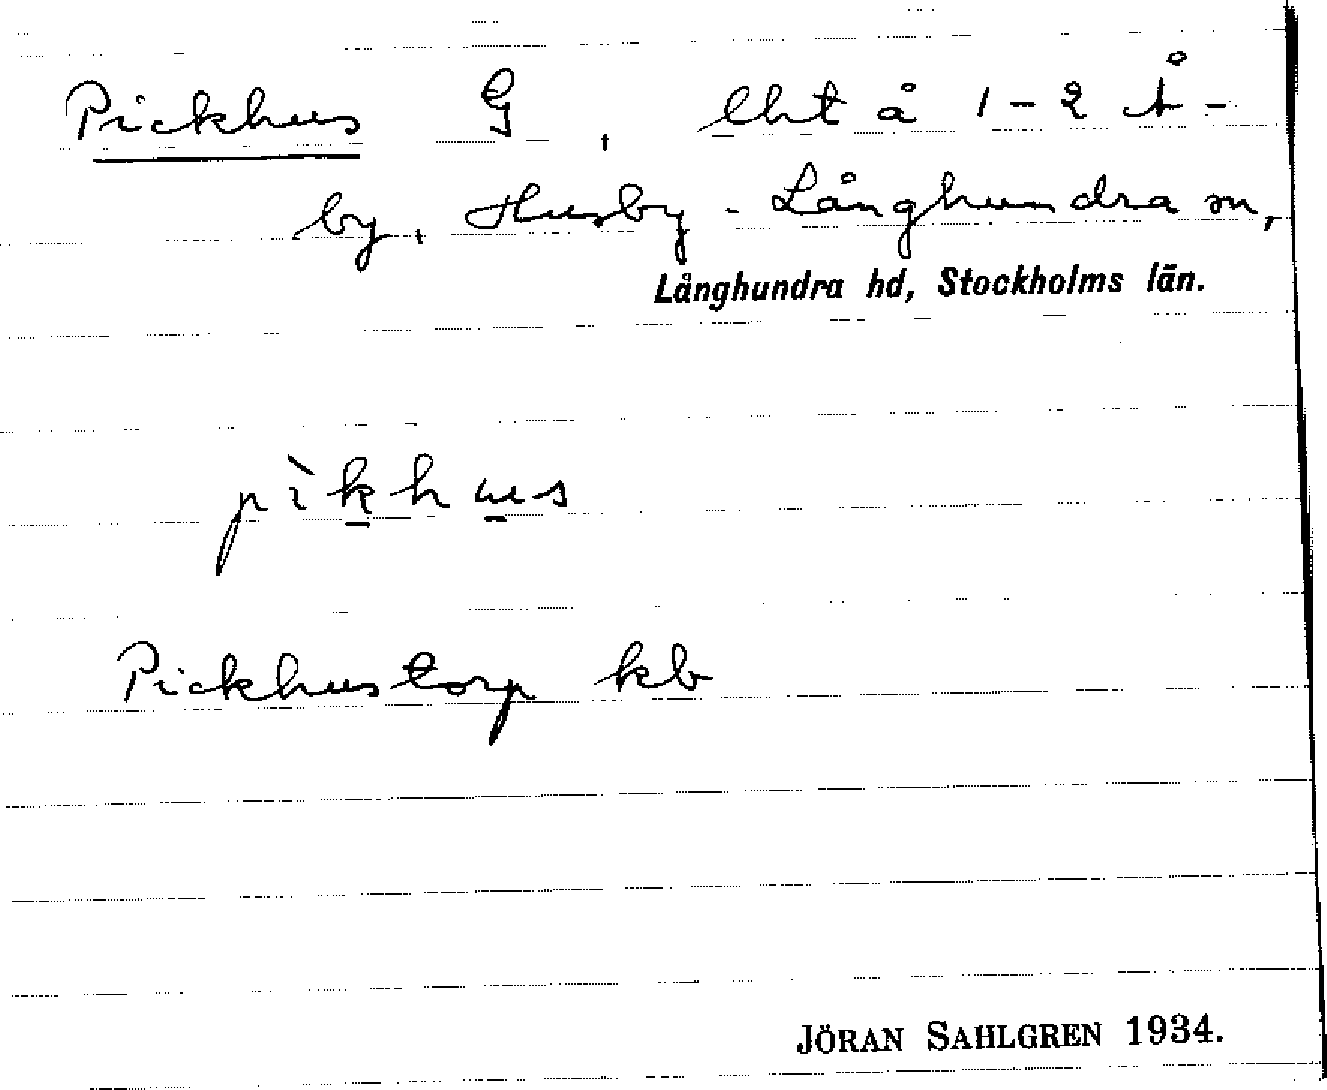 Pickhus G, lht å 1-2 Å-
by, Husby-Långhundra sn,
Långhundra hd, Stockholms län.
pìkhus
Pickhustorp kb
JÖRAN SAHLGREN 1934.